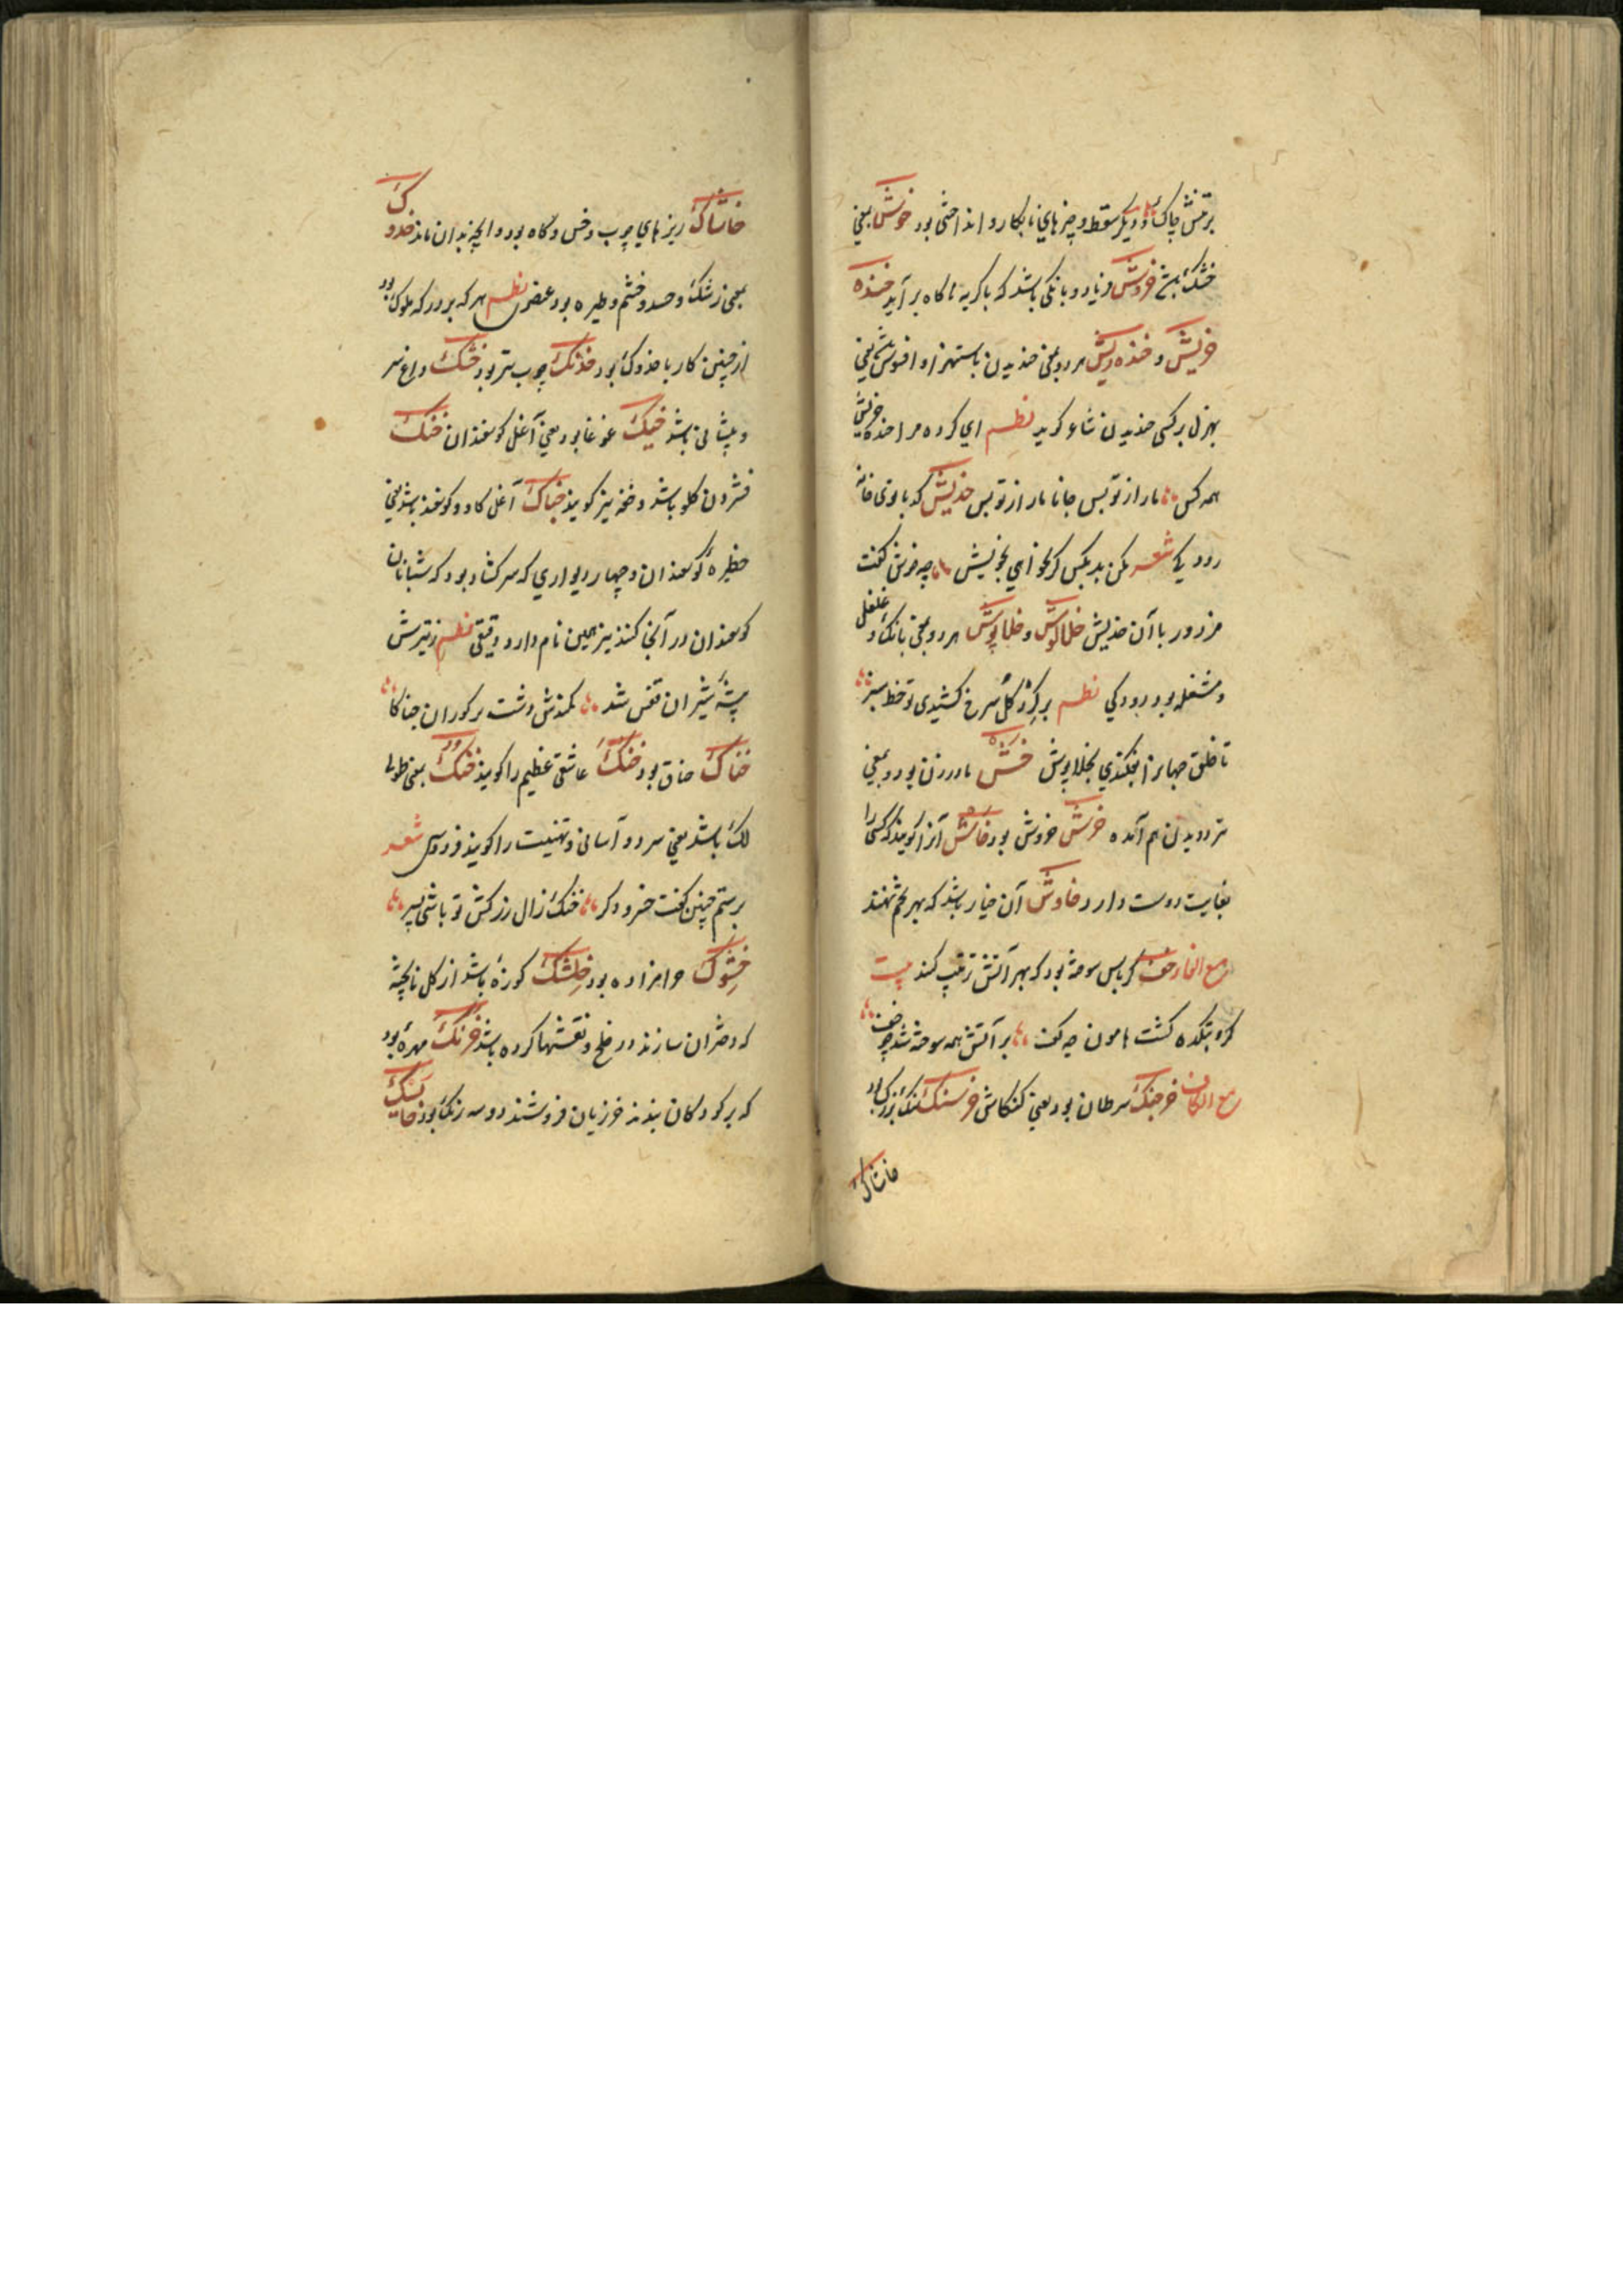 برتنش چاک و دیگر سقط و چیزهای نابکار و انداختنی بود خوش بمعنی
خشک خروش فریاد و بانگی باشد که با گریه ناگاه برآید خنده
خریش و خنده ریش هر دو بمعنی خندیدن باستهزا و افسوس یعنی
بهزل بر کسی خندیدن شاعر گوید نظم ای کرده مرا خنده خریش
همه کس ما را از تو بس جانا ما را از تو بس خدیش کدبانوی خانه
رودکی شعر مکن بد بکس گر نخواهی بخویش چه خوش گفت
مزدور با آن خدیش خلالوش و خلاپوش هر دو بمعنی بانگ و غلغل
و مشغله بود رودکی نظم برگرد گل سرخ کشیدی تو خط سبز
تا خلق جهانرا بفکندی بخلاپوش خش مادر زن بود و بمعنی
درهم آمده خرش خروش بود خاش آنرا گویند که کسی را
بغایت دوست دارد خاوش آن خیار باشد که بهر تخم نهند
مع الفا خف کرباس سوخته بود که بهر آتش ترتیب کنند بیت
گرو بتکده گشت هامون چو کف بر آتش همه سوخته شد چو خف
مع الکاف خرچنگ سرطان بود یعنی کنگاش خرسنگ سنگ بزرگ بود
خاشاک
خاشاک ریزهای چوب و خس و گاه بود و آنچه بدان ماند خدوک
بمعنی رشک و حسد و خشم و طیره بود عنصری نظم هر که بر درگه ملوک بود
از چنین کار با خدوک بود خدنگ چوب تیر بود خنک داغ سر
و پیشانی باشد خبک غوغا بود یعنی آغل گوسفندان خنک
فشردن گلو باشد و خفه نیز گویند خباک آغل گاو و گوسفند باشد یعنی
حظیرهٔ گوسفندان و چهار دیواری که سر گشاد بود که شبانان
گوسفندان در آنجا کنند نیز همین نام دارد دقیقی نظم ز تیرش
بیشهٔ شیران قفس شد کمندش دشت بر گوران خباکا
خناک خناق بود خنک عاشق عظیم را گویند خنک بمعنی طوبی
لک باشد یعنی سرد و آسانی و تهنیت را گویند فردوسی شعر
برستم چنین گفت خسرو دگر خنک زال زر کش تو باشی پسر
خشوک حرامزاده بود خلشک کوزهٔ باشد از گل ناپخته
که دختران سازند در خلج و نقشها کرده باشند خرنک مهرهٔ بود
که بر کودکان بندند خرزیان فروشند دو سه رنگ بود خایسک